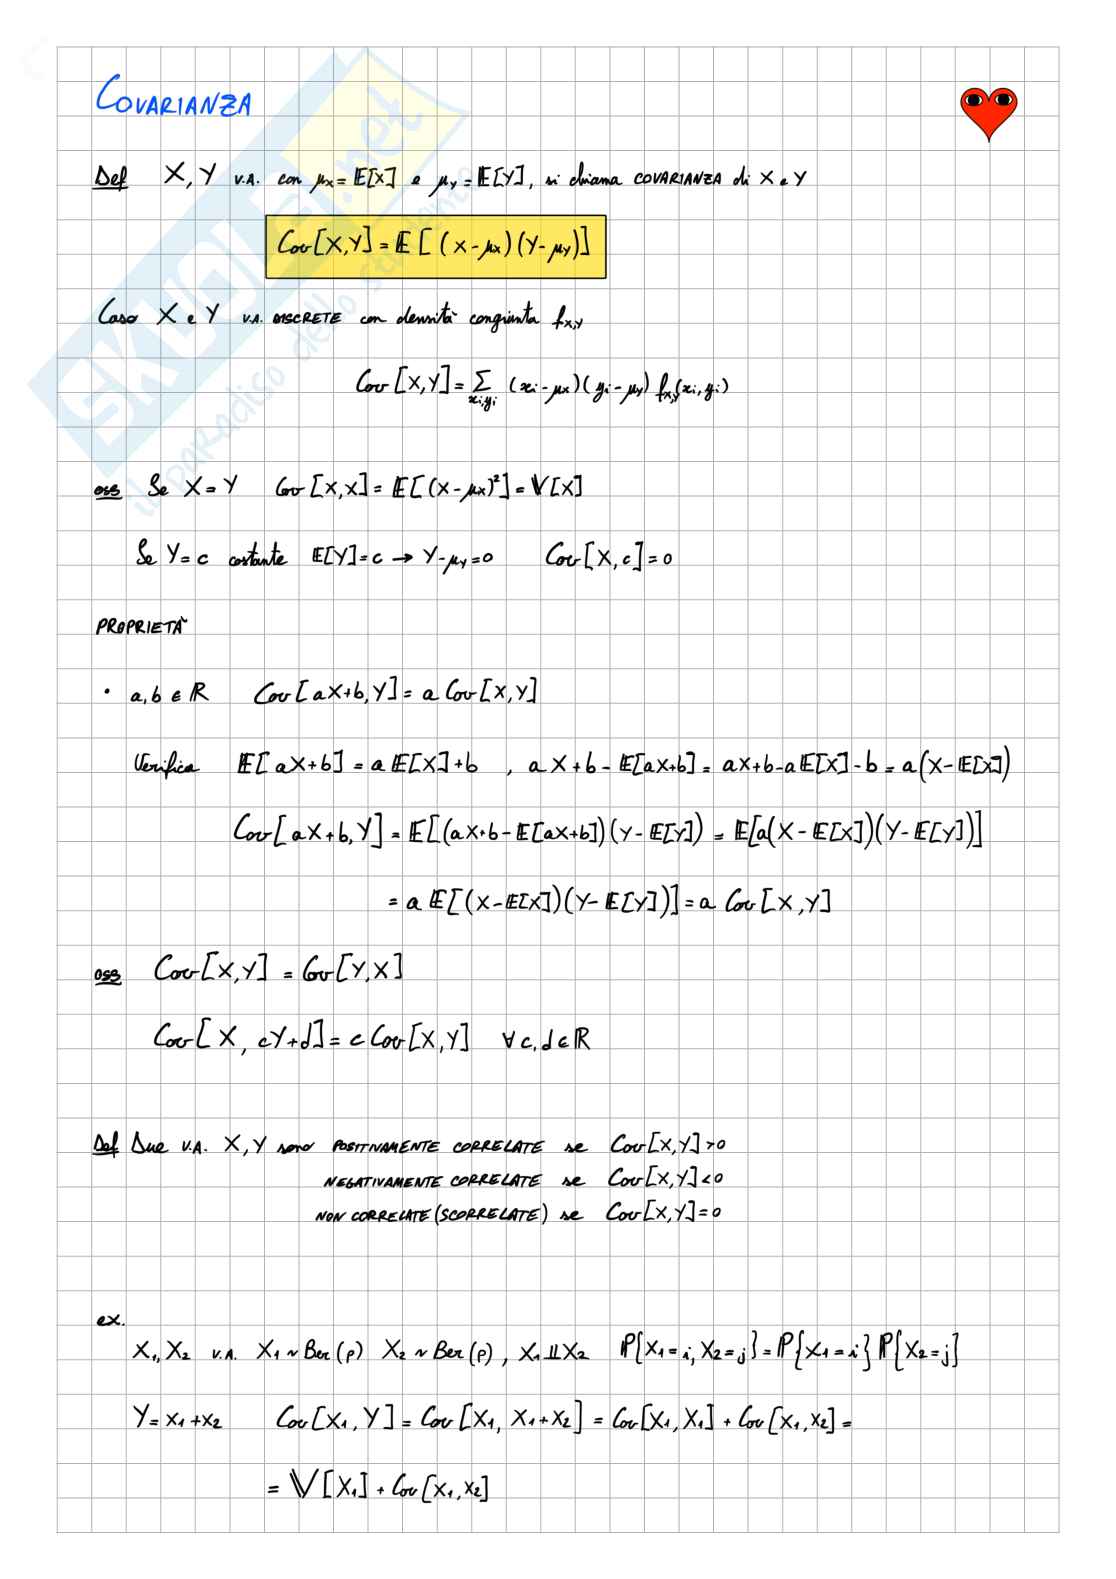 COVARIANZA
Def X, Y V.A. con μx = 𝔼[X] e μy = 𝔼[Y], si chiama COVARIANZA di X e Y
Cov[X,Y] = 𝔼[(X-μx)(Y-μy)]
Caso X e Y V.A. DISCRETE con densità congiunta fx,y
Cov[X,Y] = Σxi,yi (xi-μx)(yi-μy) fx,y(xi,yi)
oss Se X=Y Cov[X,X] = 𝔼[(X-μx)²] = 𝕍[X]
Se Y=c costante 𝔼[Y]=c → Y-μy=0 Cov[X,c]=0
PROPRIETÀ
• a,b ∈ ℝ Cov[aX+b,Y] = a Cov[X,Y]
Verifica 𝔼[aX+b] = a𝔼[X]+b , aX+b-𝔼[aX+b] = aX+b-a𝔼[X]-b = a(X-𝔼[X])
Cov[aX+b,Y] = 𝔼[(aX+b-𝔼[aX+b])(Y-𝔼[Y]) = 𝔼[a(X-𝔼[X])(Y-𝔼[Y])]
= a 𝔼[(X-𝔼[X])(Y-𝔼[Y])] = a Cov[X,Y]
oss Cov[X,Y] = Cov[Y,X]
Cov[X, cY+d] = c Cov[X,Y] ∀ c,d ∈ ℝ
Def Due V.A. X,Y sono POSITIVAMENTE CORRELATE se Cov[X,Y]>0
NEGATIVAMENTE CORRELATE se Cov[X,Y]<0
NON CORRELATE (SCORRELATE) se Cov[X,Y]=0
ex.
X₁,X₂ V.A. X₁ ~ Ber(p) X₂ ~ Ber(p), X₁ ⫫ X₂ ℙ{X₁=i, X₂=j} = ℙ{X₁=i} ℙ{X₂=j}
Y = X₁+X₂ Cov[X₁,Y] = Cov[X₁, X₁+X₂] = Cov[X₁,X₁] + Cov[X₁,X₂] =
= 𝕍[X₁] + Cov[X₁,X₂]
SKUOLA.net
il paradiso dello studente